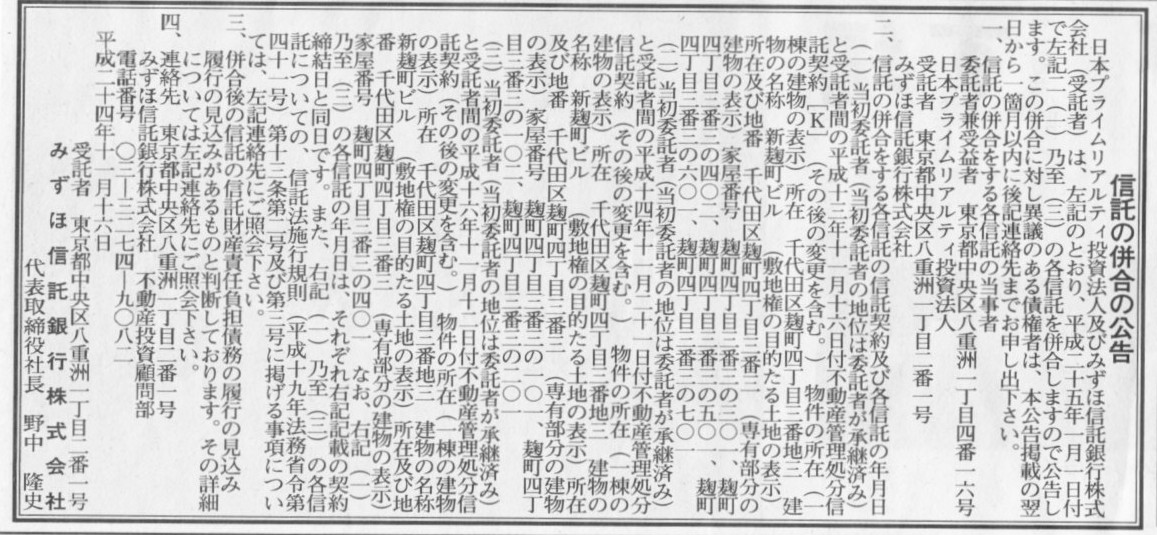 信託の併合の公告
日本プライムリアルティ投資法人及びみずほ信託銀行株式
会社（受託者）は、左記のとおり、平成二十五年一月一日付
で左記二（一）乃至（三）の各信託を併合しますので公告し
ます。この併合に対し異議のある債権者は、本公告掲載の翌
日から一箇月以内に後記連絡先までお申し出下さい。
一、信託の併合をする各信託の当事者
委託者兼受益者　東京都中央区八重洲一丁目四番一六号
日本プライムリアルティ投資法人
受託者　東京都中央区八重洲一丁目二番一号
みずほ信託銀行株式会社
二、信託の併合をする各信託の信託契約及び各信託の年月日
（一）当初委託者（当初委託者の地位は委託者が承継済み）
と受託者間の平成十三年十一月十六日付不動産管理処分信
託契約［K］（その後の変更を含む。）　物件の所在（一
棟の建物の表示）所在　千代田区麹町四丁目三番地三　建
物の名称　新麹町ビル　（敷地権の目的たる土地の表示）
所在及び地番　千代田区麹町四丁目三番三　（専有部分の
建物の表示）家屋番号　麹町四丁目三番三の三〇一、麹町
四丁目三番三の四〇二、麹町四丁目三番三の五〇一、麹町
四丁目三番三の六〇一、麹町四丁目三番三の七〇一
（二）当初委託者（当初委託者の地位は委託者が承継済み）
と受託者間の平成十四年十一月二十一日付不動産管理処分
信託契約（その後の変更を含む。）　物件の所在（一棟の
建物の表示）所在　千代田区麹町四丁目三番地三　建物の
名称　新麹町ビル　（敷地権の目的たる土地の表示）所在
及び地番　千代田区麹町四丁目三番三　（専有部分の建物
の表示）家屋番号　麹町四丁目三番三の一〇一、麹町四丁
目三番三の一〇二、麹町四丁目三番三の二〇一
（三）当初委託者（当初委託者の地位は委託者が承継済み）
と受託者間の平成十六年十一月十二日付不動産管理処分信
託契約（その後の変更を含む。）　物件の所在（一棟の建物
の表示）所在　千代田区麹町四丁目三番地三　建物の名称
新麹町ビル　（敷地権の目的たる土地の表示）所在及び地
番　千代田区麹町四丁目三番三　（専有部分の建物の表示）
家屋番号　麹町四丁目三番三の四〇一　なお、右記（一）
乃至（三）の各信託の年月日は、それぞれ右記記載の契約
締結日と同日です。また、右記（一）乃至（三）の各信
託についての、信託法施行規則（平成十九年法務省令第
四十一号）第十三条第二号及び第三号に掲げる事項につい
ては、左記連絡先にご照会下さい。
三、併合後の信託の信託財産責任負担債務の履行の見込み
履行の見込みがあるものと判断しております。その詳細
については左記連絡先にご照会下さい。
四、連絡先　東京都中央区八重洲一丁目二番一号
みずほ信託銀行株式会社　不動産投資顧問部
電話番号　〇三―三二七四―九〇八二
平成二十四年十一月十六日
受託者　東京都中央区八重洲一丁目二番一号
みずほ信託銀行株式会社
代表取締役社長　野中　隆史